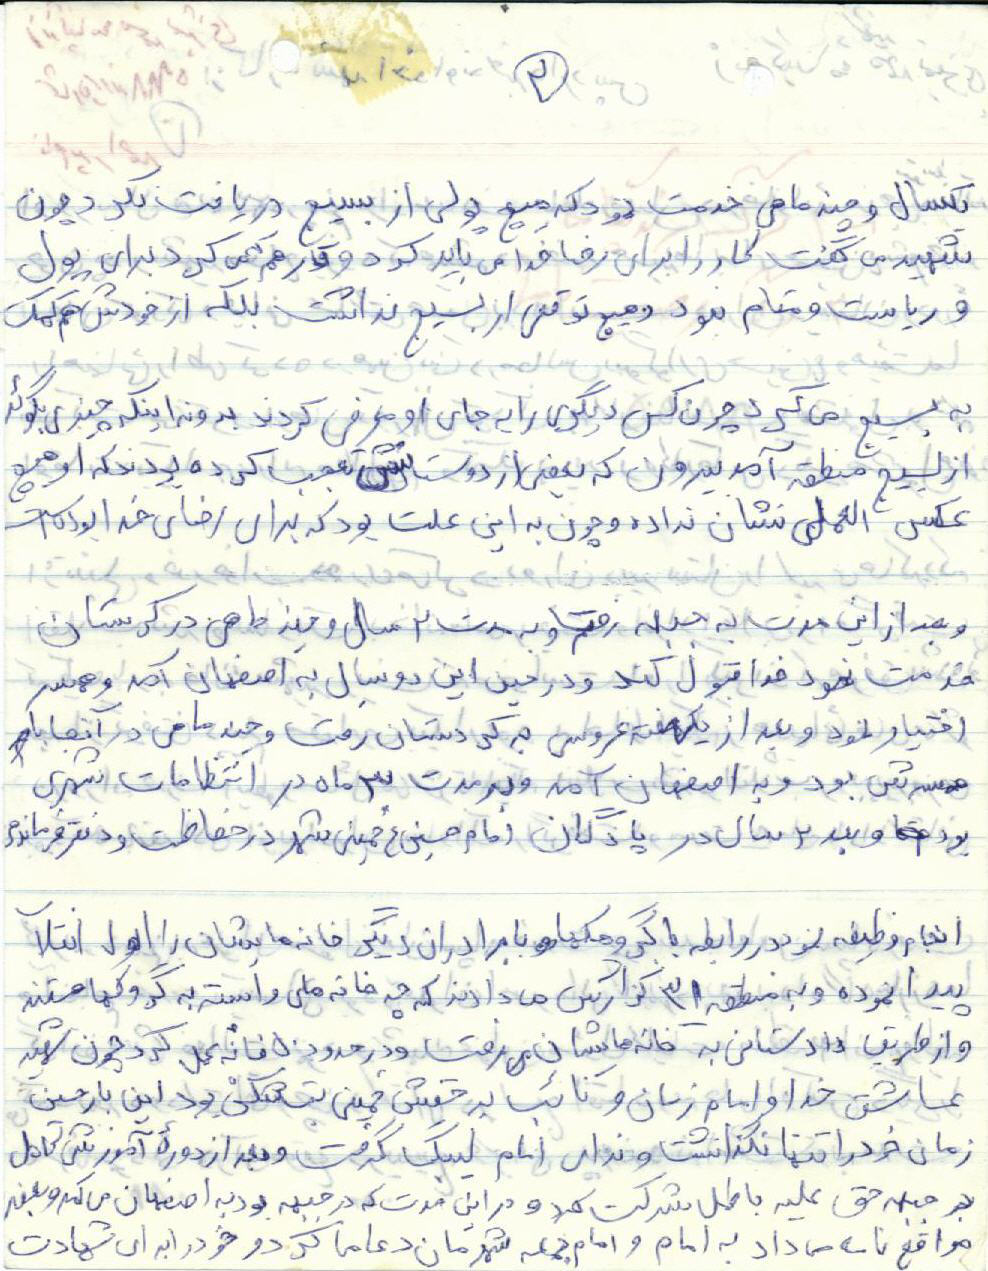 ۳
یکسال و چند ماهی خدمت نمود که هیچ پولی از بسیج دریافت نکرد چون
شهید می گفت کار را برای رضا خدا می باید کرد و کار هم نمی کرد برای پول
و ریاست و مقام نبود و هیچ توقعی از بسیج نداشت بلکه از خودش هم کمک
به بسیج می کرد چون کس دیگری را به جای او معرفی کردند بدون اینکه چیزی بگوئد
از بسیج منطقه آمد بیرون که بعضی از دوستانش تعجب کرده بودند که او هیچ
عکس العملی نشان نداده و چون به این علت بود که برای رضای خدا بوده است
و بعد از این مدت به جبهه رفت و به مدت ۲ سال و چند ماهی در کردستان
خدمت نمود خدا قبول کند و در حین این دو سال به اصفهان آمد و همسر
اختیار نمود و بعد از یکهفته عروسی به کردستان رفت و چند ماهی در آنجا با
همسرش بود و به اصفهان آمد و به مدت ۳ ماه در انتظامات شهری
بود و بعد ۲ سال در پادگان امام حسین ع خمینی شهر در حفاظت و دفتر فرماندهی
انجام وظیفه نمود در رابطه با گروهکها و با برادران دیگر خانه هایشان را اول
پیدا نموده و به منطقه ۳۱ گزارش می دادند که چه خانه های وابسته به گروهکها هستند
و از طریق دادستانی به خانه هایشان می رفت و در حدود ۵ خانه عمل کرد چون شهید
عاشق خدا و امام زمان و نائب بر حقش خمینی بت شکن بود این بار حسین
زمان خود را تنها نگذاشت و ندای امام لبیک گفت و بعد از دورهٔ آموزشی کامل
در جبهه حق علیه باطل شرکت کرد و در این مدت که در جبهه بود به اصفهان می آمد و بعضی
مواقع نامه می داد به امام و امام جمعه شهرمان دعا می کرد و خود را به ای شهادت